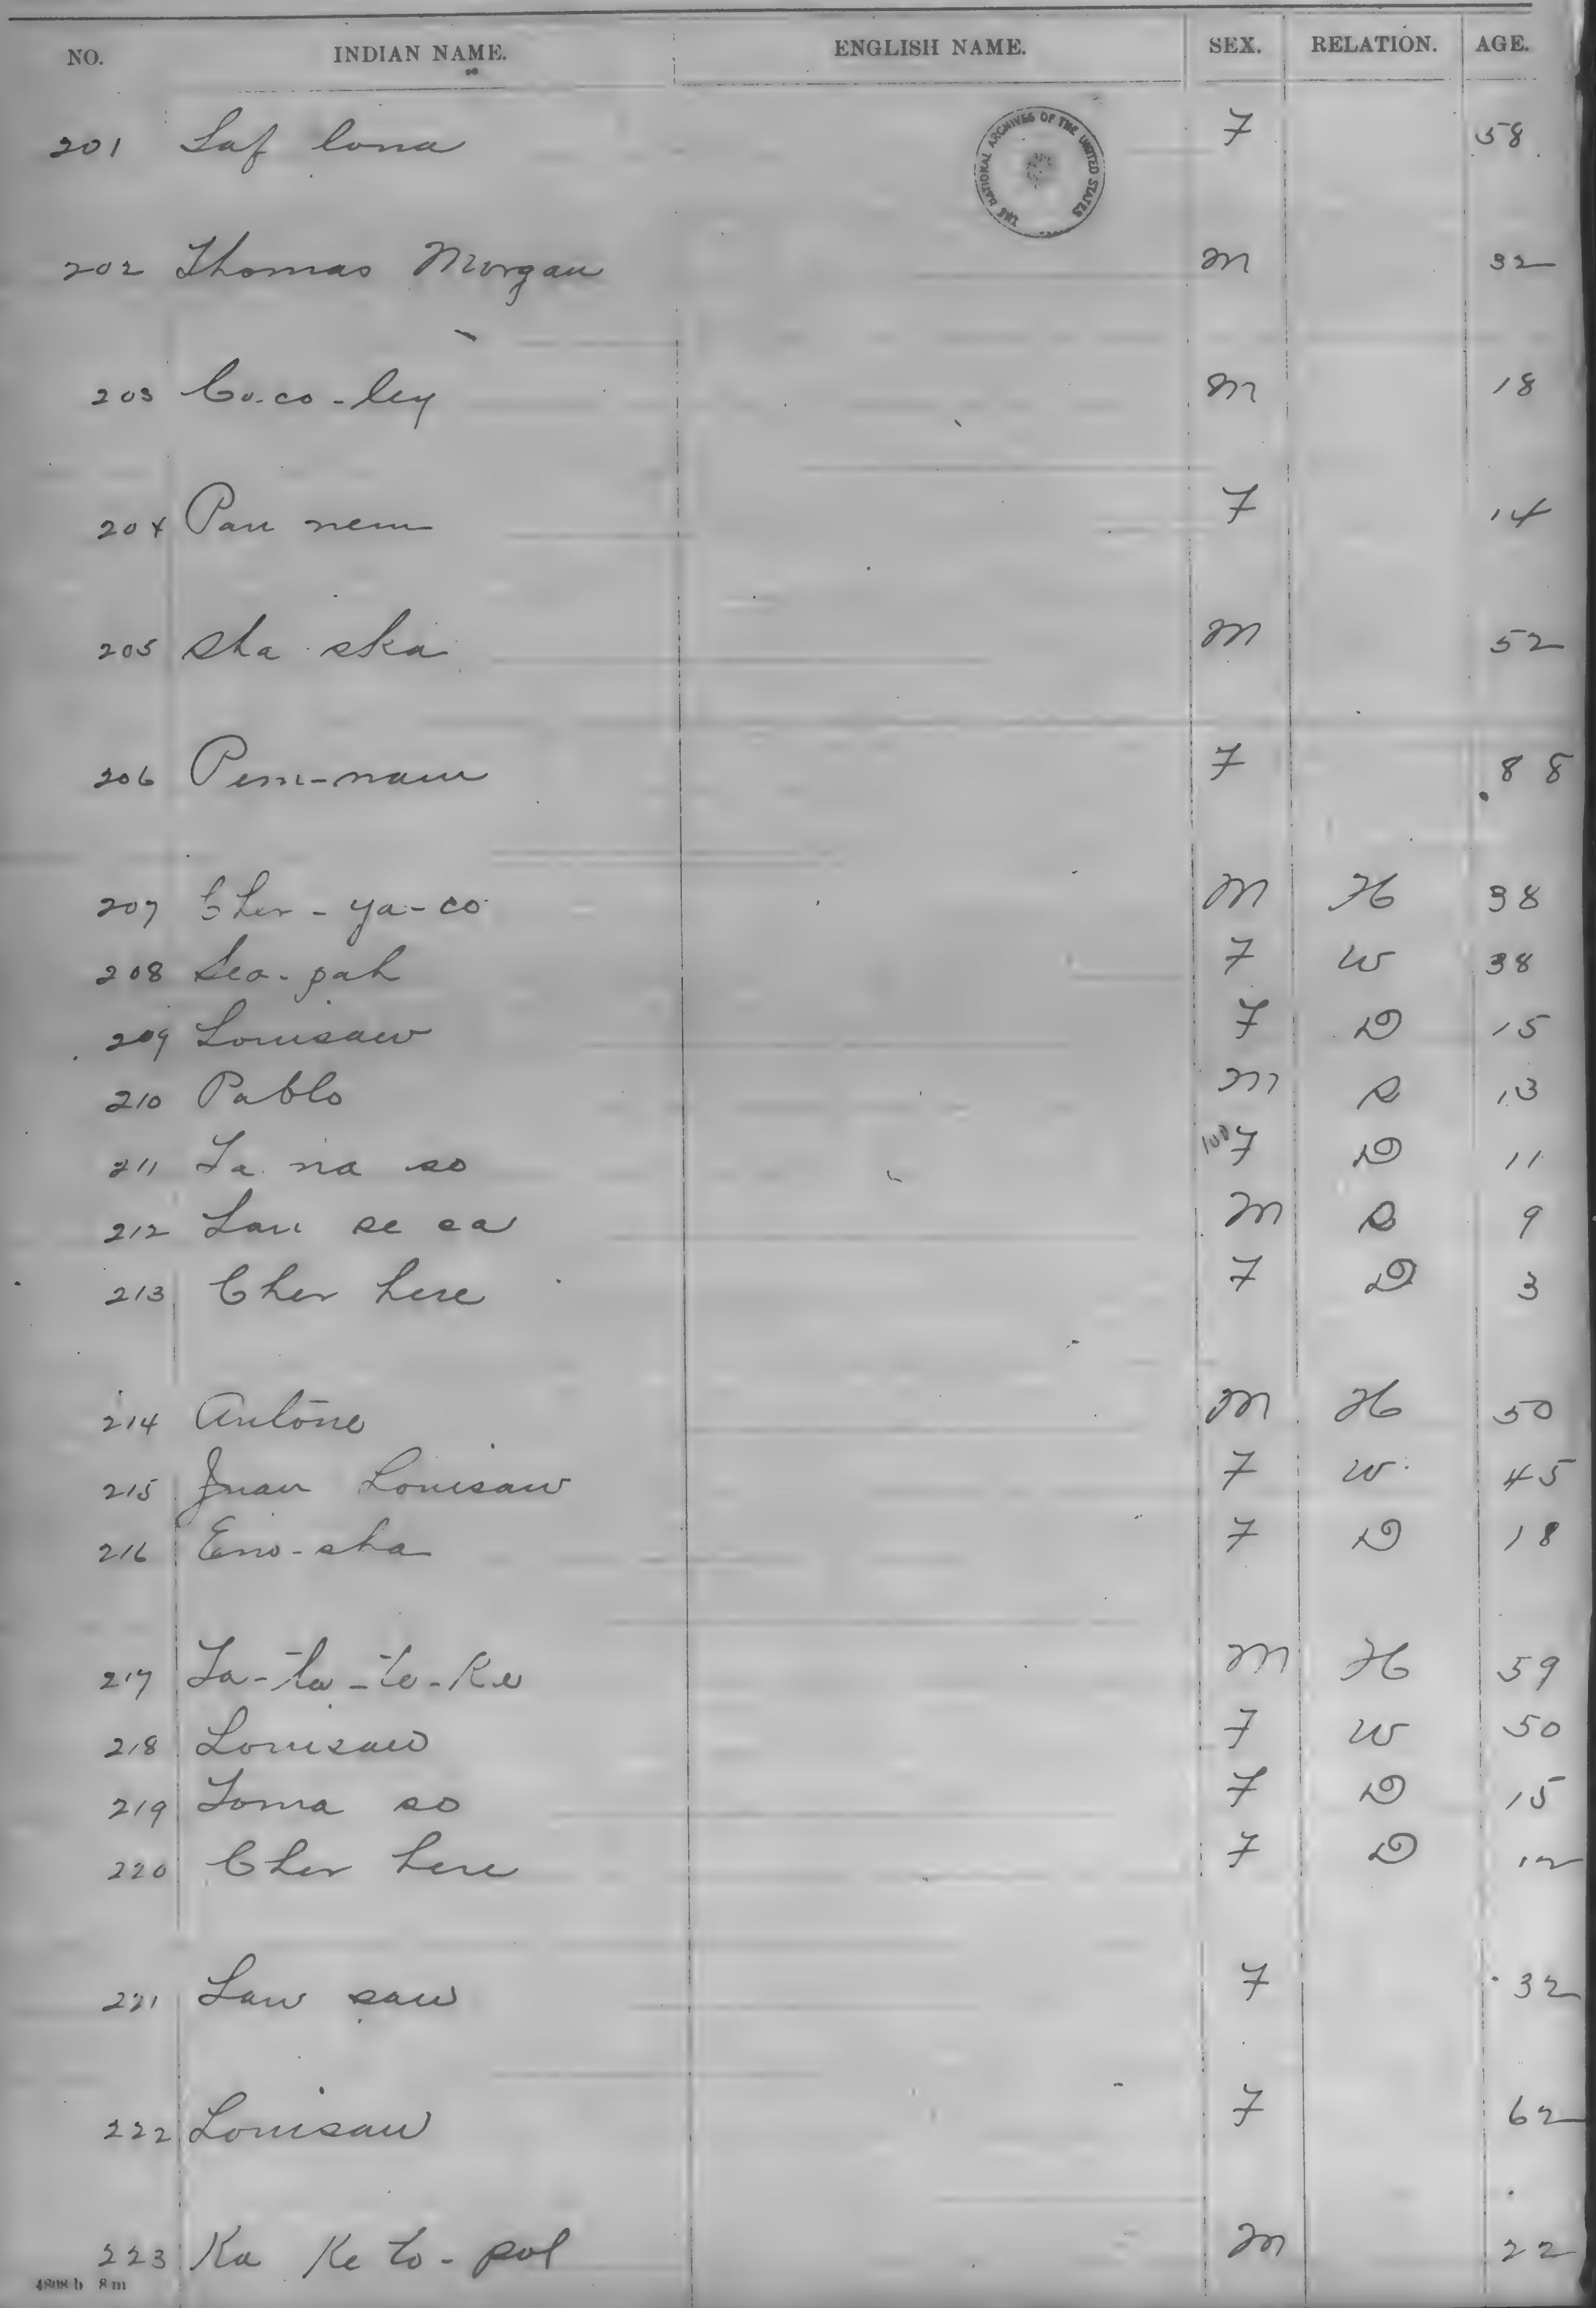 NO. INDIAN NAME. ENGLISH NAME. SEX. RELATION. AGE.
THE NATIONAL ARCHIVES OF THE UNITED STATES
201 Laf lona F 58
202 Thomas Morgan M 32
203 Co-co-ley M 18
204 Pau nem F 14
205 Sha ska M 52
206 Pem-nau F 88
207 Cher-ya-co M H 38
208 Leo-pah F W 38
209 Louisaw F D 15
210 Pablo M S 13
211 La na so 100 F D 11
212 Lau se sa M S 9
213 Cher here F D 3
214 Antone M H 50
215 Juan Louisaw F W 45
216 Eno-sha F D 18
217 La-ta-to-Ke M H 59
218 Louisaw F W 50
219 Toma so F D 15
220 Cher here F D 12
221 Law saw F 32
222 Louisaw F 62
223 Ka Ke to-pol M 22
4808 b 8 m